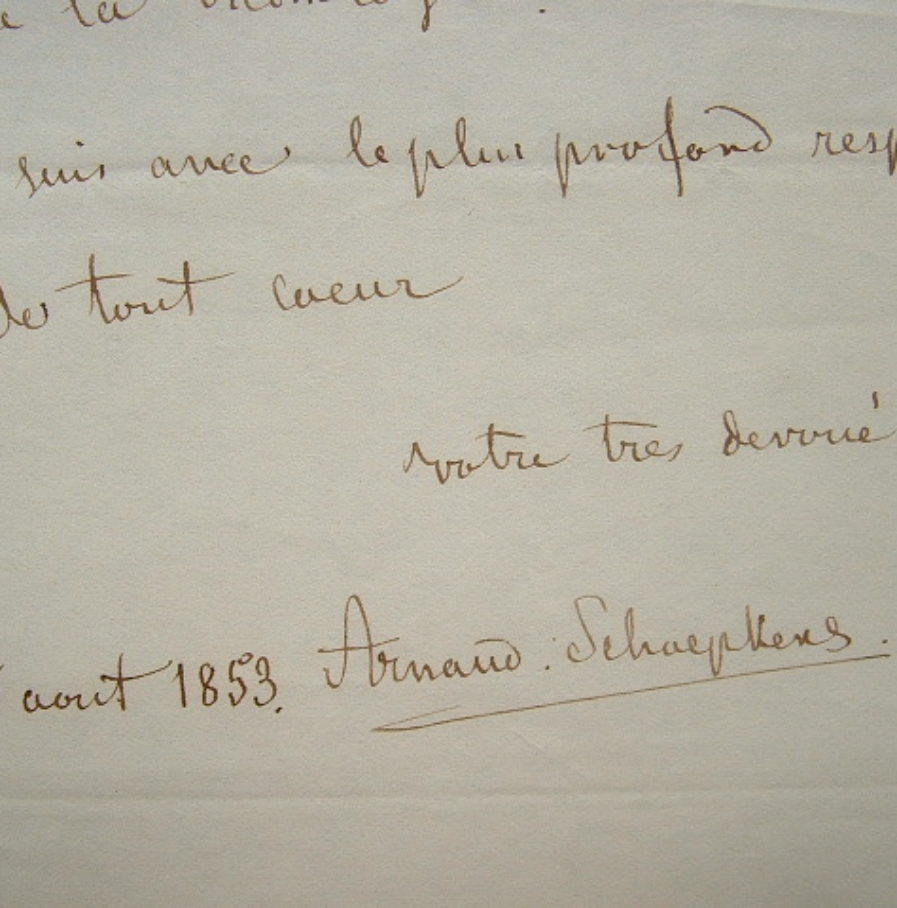 la
suis avec le plus profond resp
de tout coeur
votre tres devoué
aout 1853. Arnaud. Schaepkens.